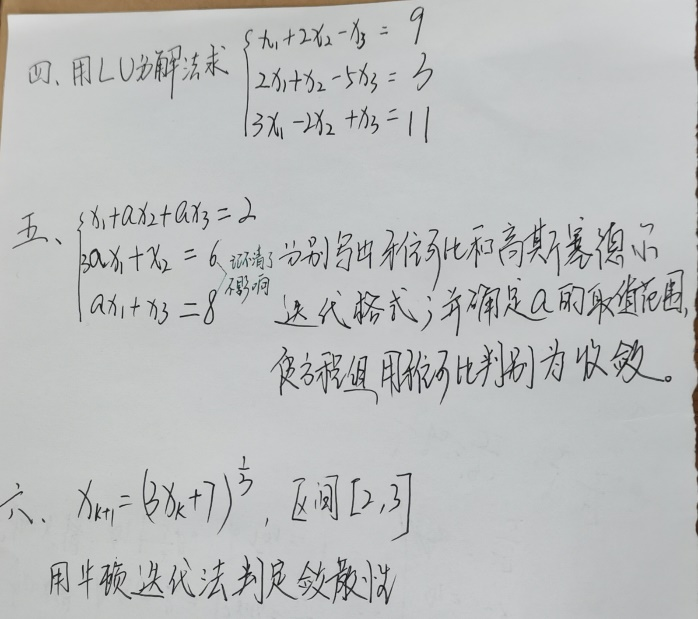 四、用LU分解法求 x₁+2x₂-x₃=9
2x₁+x₂-5x₃=3
3x₁-2x₂+x₃=11
五、 x₁+ax₂+ax₃=2
3ax₁+x₂=6
ax₁+x₃=8
记不清了
不影响
分别写出雅可比和高斯赛德尔
迭代格式;并确定a的取值范围,
使方程组用雅可比判别为收敛。
六、x_{k+1}=(3x_k+7)^{1/3},区间[2,3]
用牛顿迭代法判定敛散性